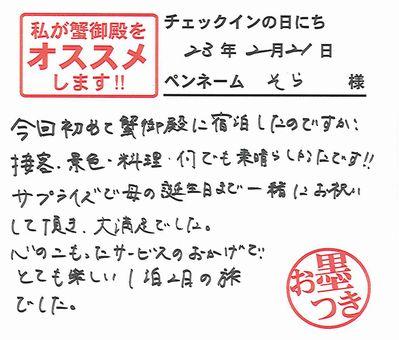 私が蟹御殿を
オススメ
します!!
チェックインの日にち
23年 2月21日
ペンネーム そら 様
今回初めて蟹御殿に宿泊したのですが、
接客・景色・料理・何でも素晴らしかったです!!
サプライズで母の誕生日まで一緒にお祝い
して頂き、大満足でした。
心のこもったサービスのおかげで
とても楽しい1泊2日の旅
でした。
お墨
つき